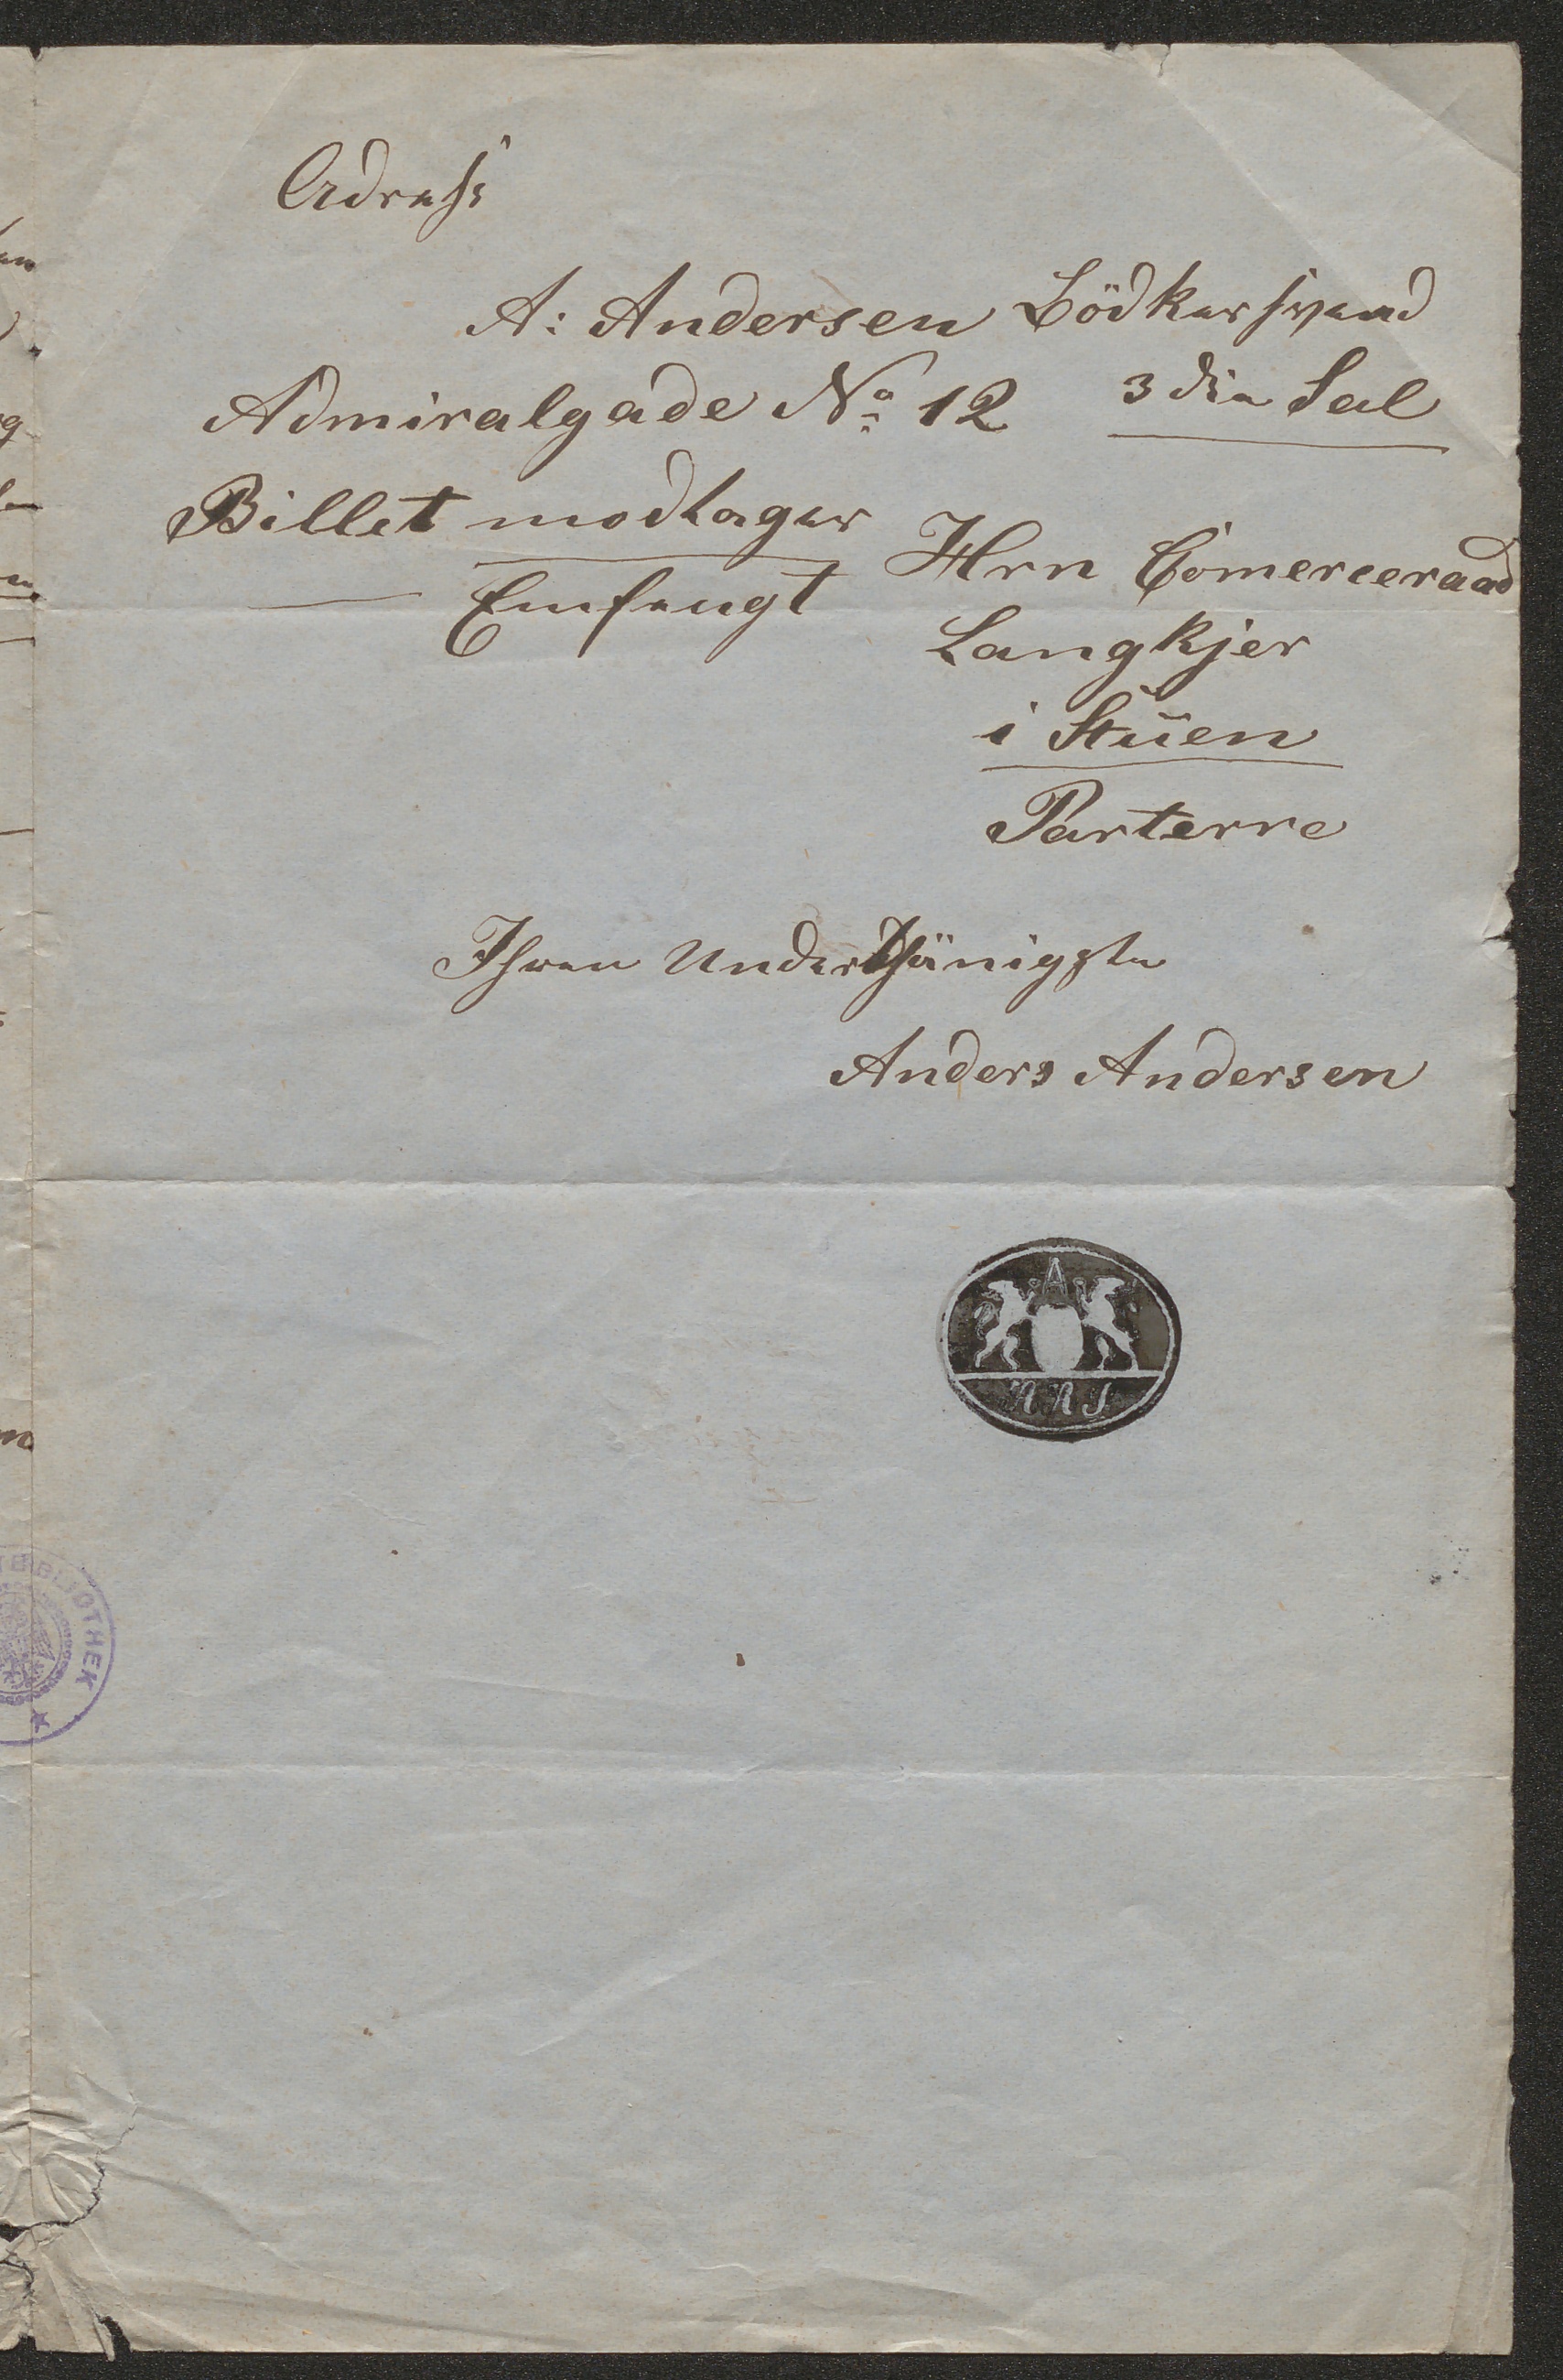 Adress
A: Andersen Bödkersvend
Admiralgade No 12 3die Sal
Billet modtager
Emfangt
Hrn Comerceraad
Langkjer
i Stuen
Parterre
Ihren Underthänigste
Anders Andersen
A
A A S
BIBLIOTHEK